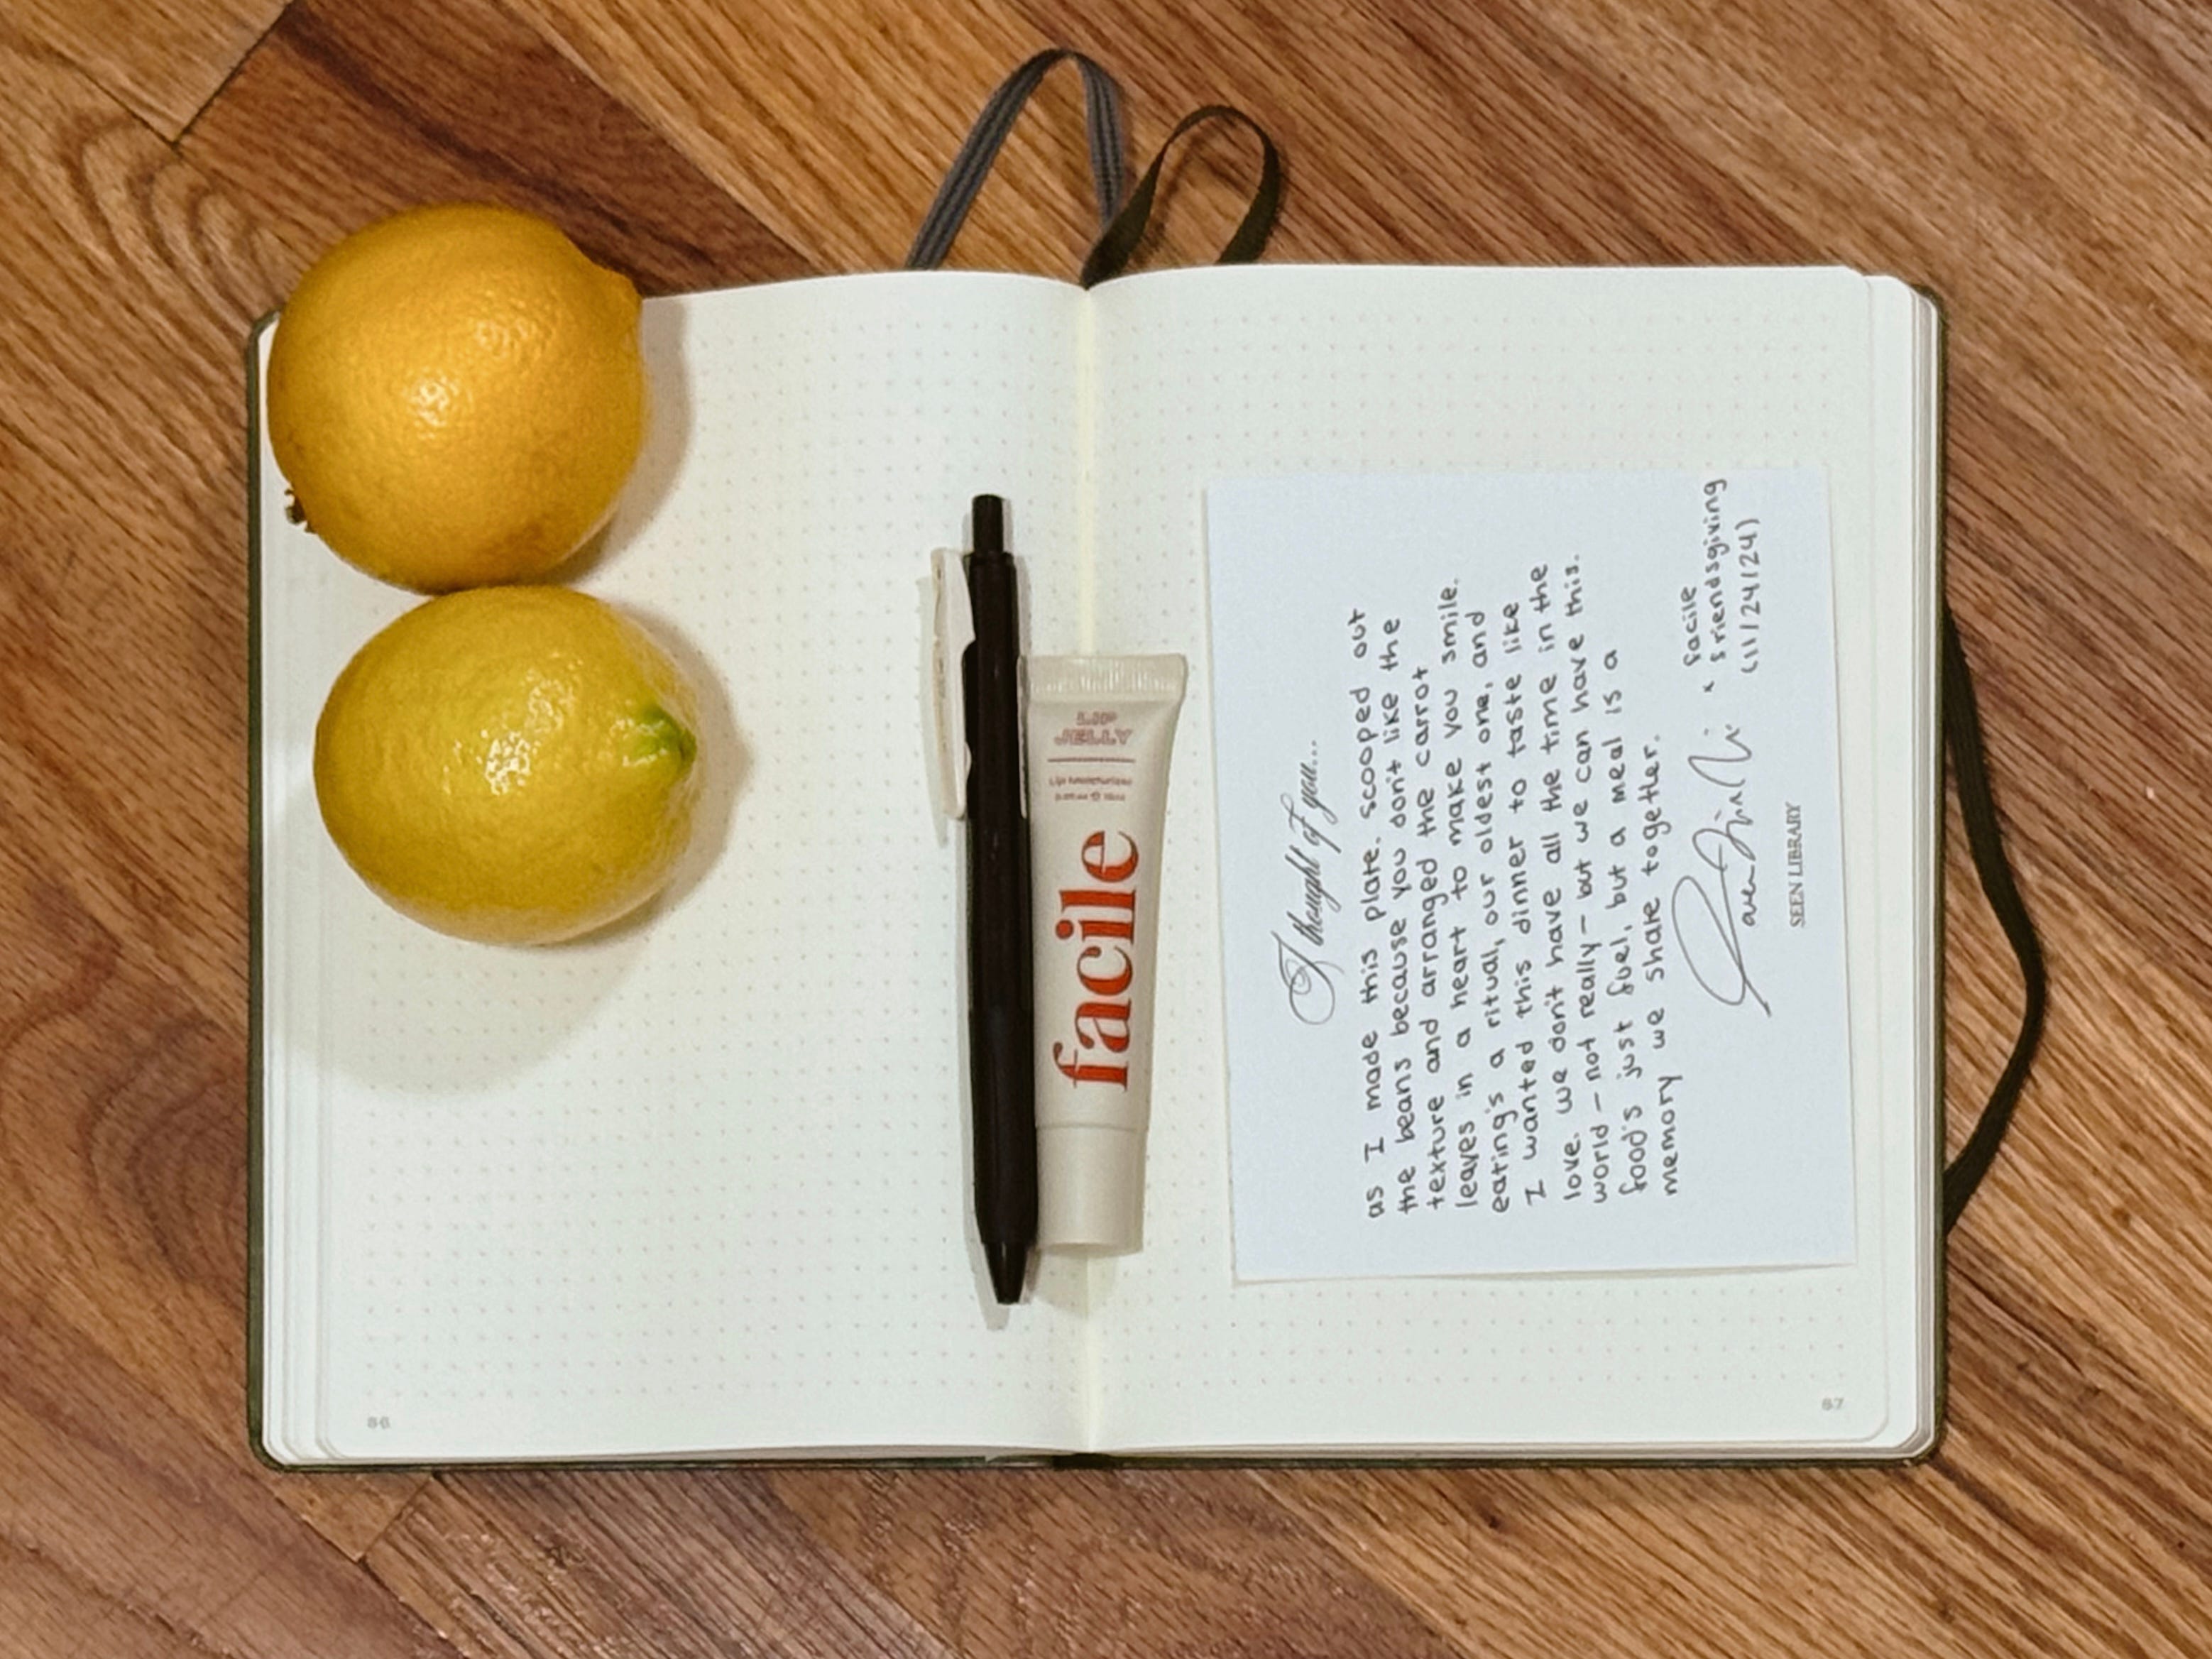 LIP
JELLY
facile
I thought of you...
as I made this plate. scooped out
the beans because you don't like the
texture and arranged the carrot
leaves in a heart to make you smile.
eating's a ritual, our oldest one, and
I wanted this dinner to taste like
love. we don't have all the time in the
world – not really – but we can have this.
food's just fuel, but a meal is a
memory we share together.
x facile
friendsgiving
(11/24/24)
SEEN LIBRARY
86
87